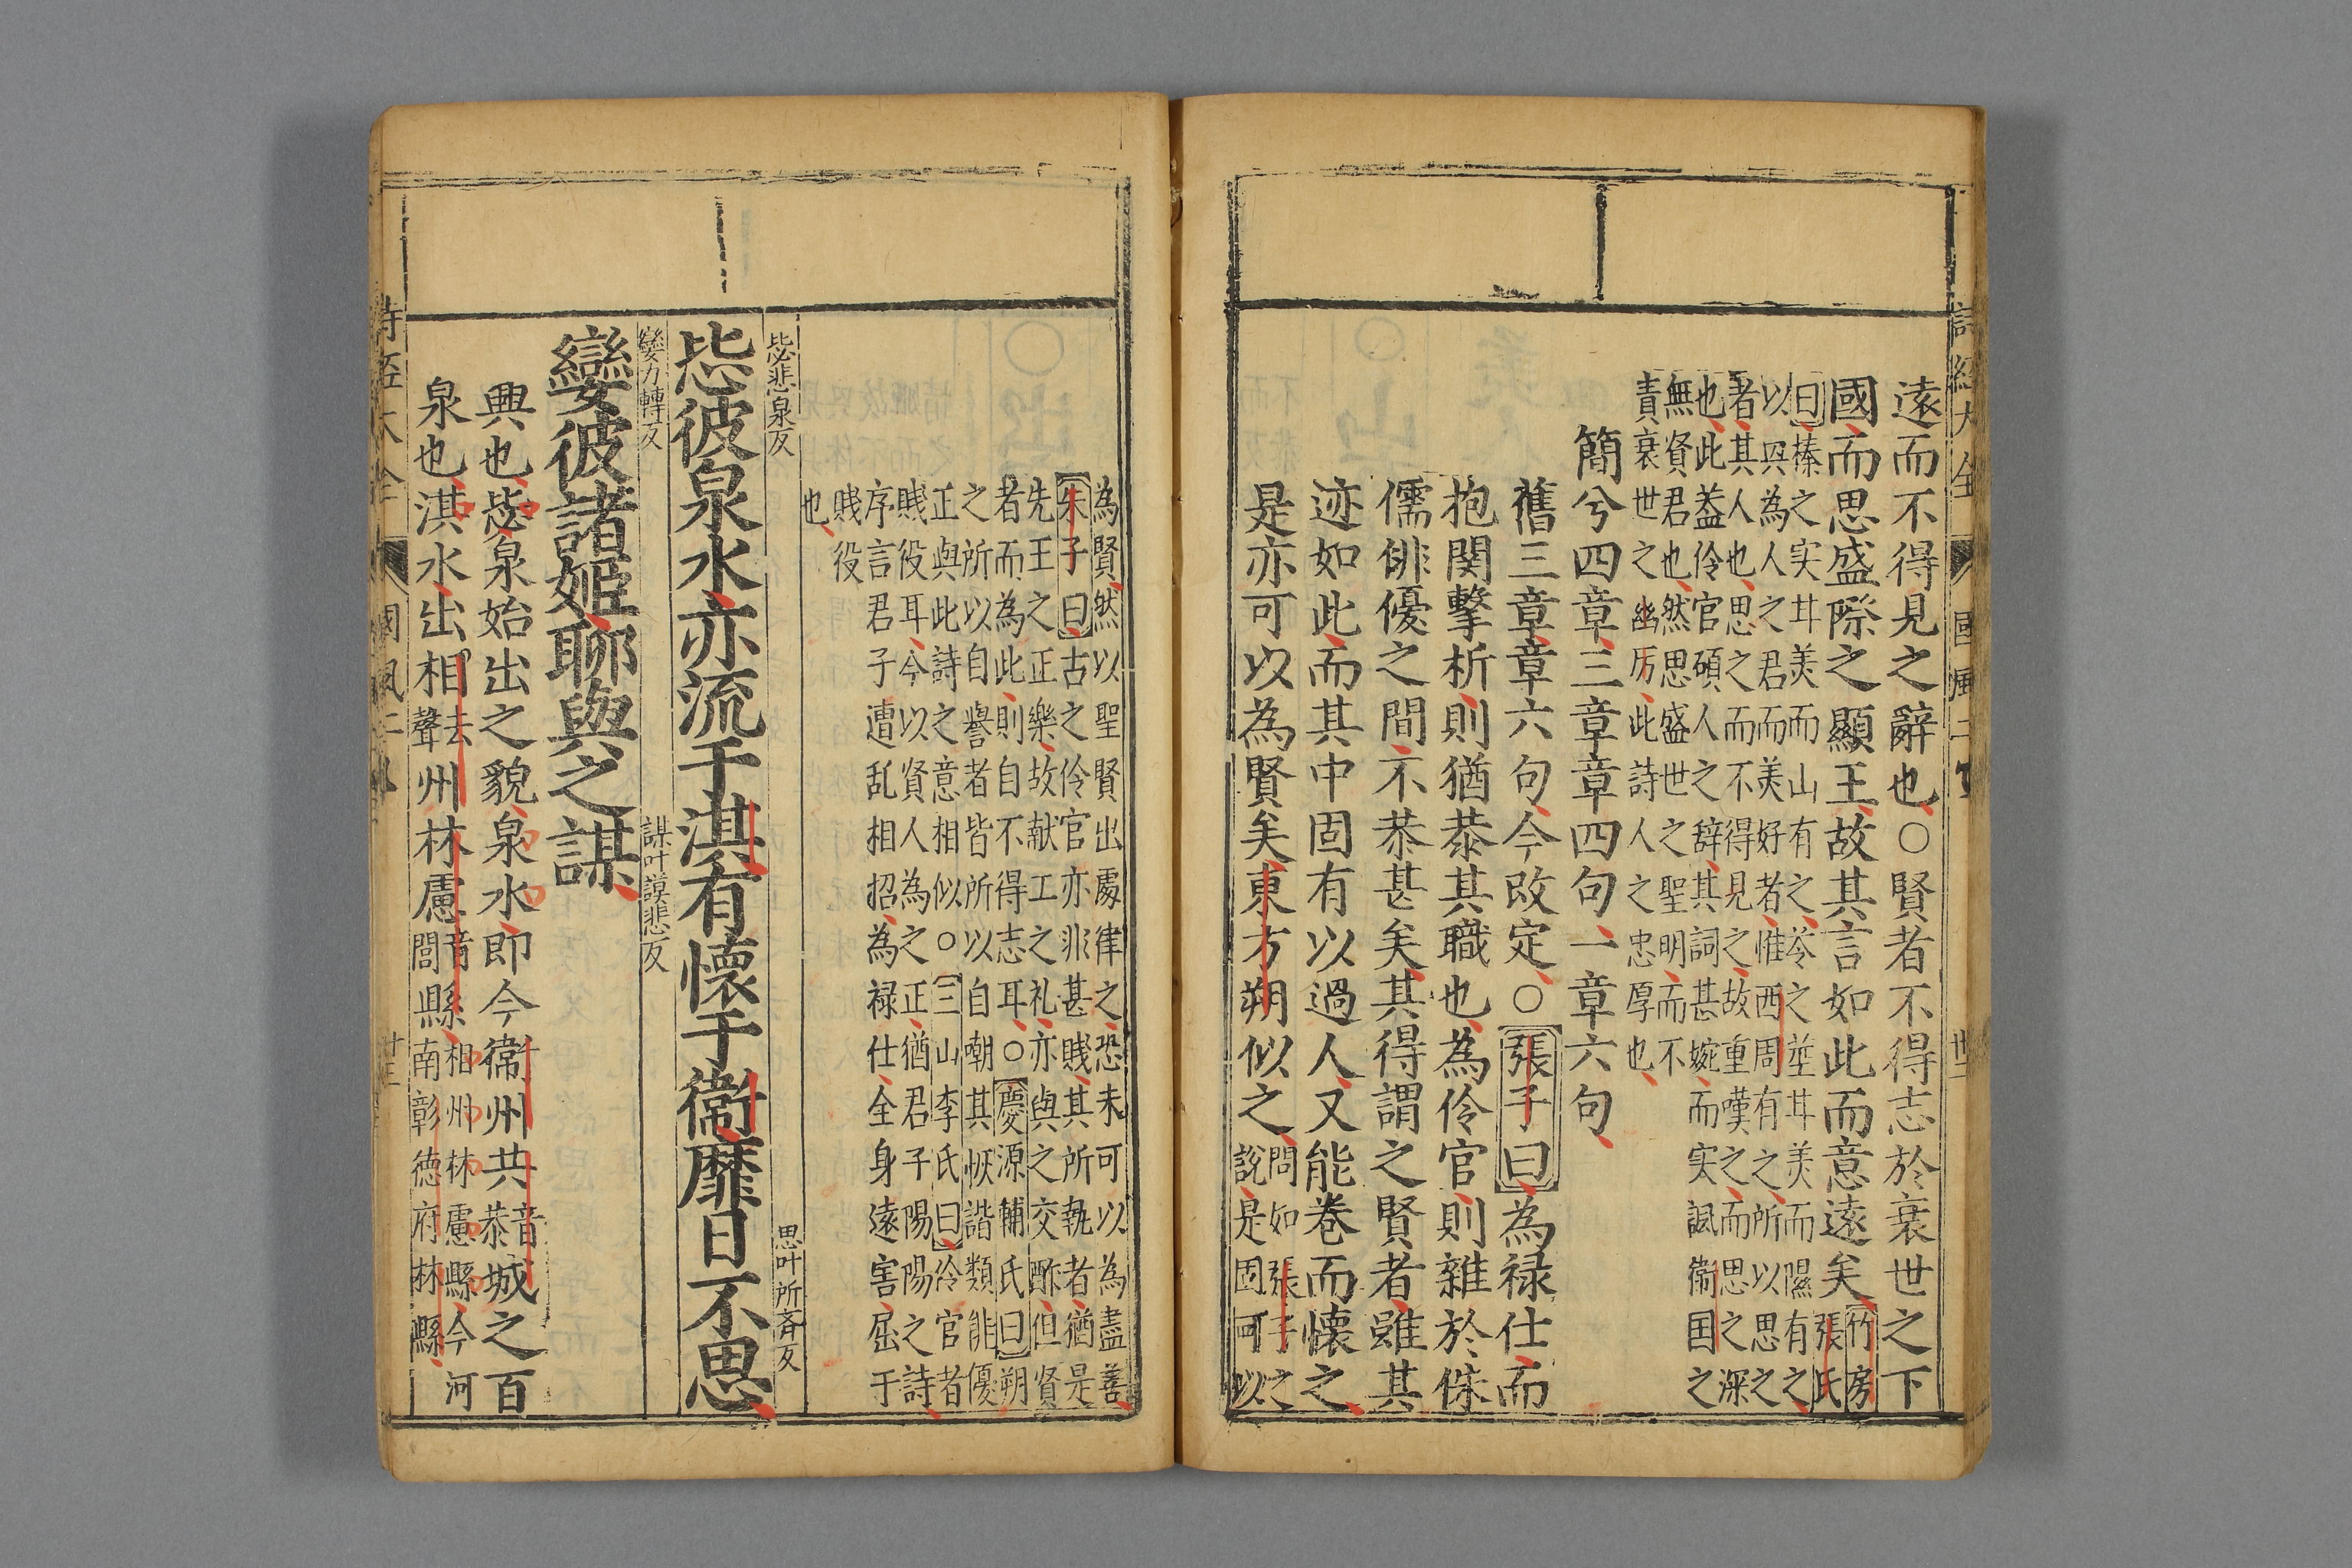 遠而不得見之辭也○賢者不得志於衰世之下
國而思盛際之顯王故其言如此而意遠矣竹房
張氏
曰榛之实甘美而山有之苓之莖甘美而隰有之
以興為人之君而美好者惟西周有之所以思之
者其人也思之而不得見之故重嘆之而思之深
也此盖伶官碩人之辞其詞甚婉而实諷衛国之
無賢君也然思盛世之聖明而不
責衰世之幽厉此詩人之忠厚也
簡兮四章三章章四句一章六句
舊三章章六句今改定○張子曰為禄仕而
抱関擊柝則猶恭其職也為伶官則雜於侏
儒俳優之間不恭甚矣其得謂之賢者雖其
迹如此而其中固有以過人又能卷而懷之
是亦可以為賢矣東方朔似之
問如張子之
說是固可以
為賢然以聖賢出處律之恐未可以為盡善
朱子曰古之伶官亦非甚賤其所執者猶是
先王之正樂故献工之礼亦與之交酢但賢
者而為此則自不得志耳○慶源輔氏曰朔
之所以自譽者皆所以自嘲其恢諧類能優
正與此詩之意相似○三山李氏曰伶官者
賤役耳今以賢人為之正猶君子陽陽之詩
序言君子遭乱相招為禄仕全身遠害屈于
賤役
也
毖悲泉反
思叶所斉反
毖彼泉水亦流于淇有懷于衛靡日不思
孌力轉反
謀叶謨悲反
孌彼諸姬聊與之謀
興也毖泉始出之貌泉水即今衛州共音恭城之百
泉也淇水出相去聲州林慮音閭縣相州林慮縣今河
南彰德府林縣